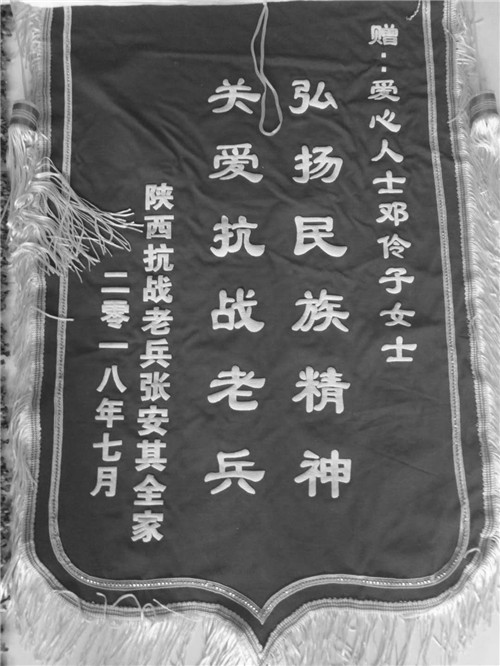 赠：爱心人士邓伶子女士
弘扬民族精神
关爱抗战老兵
陕西抗战老兵张安其全家
二零一八年七月